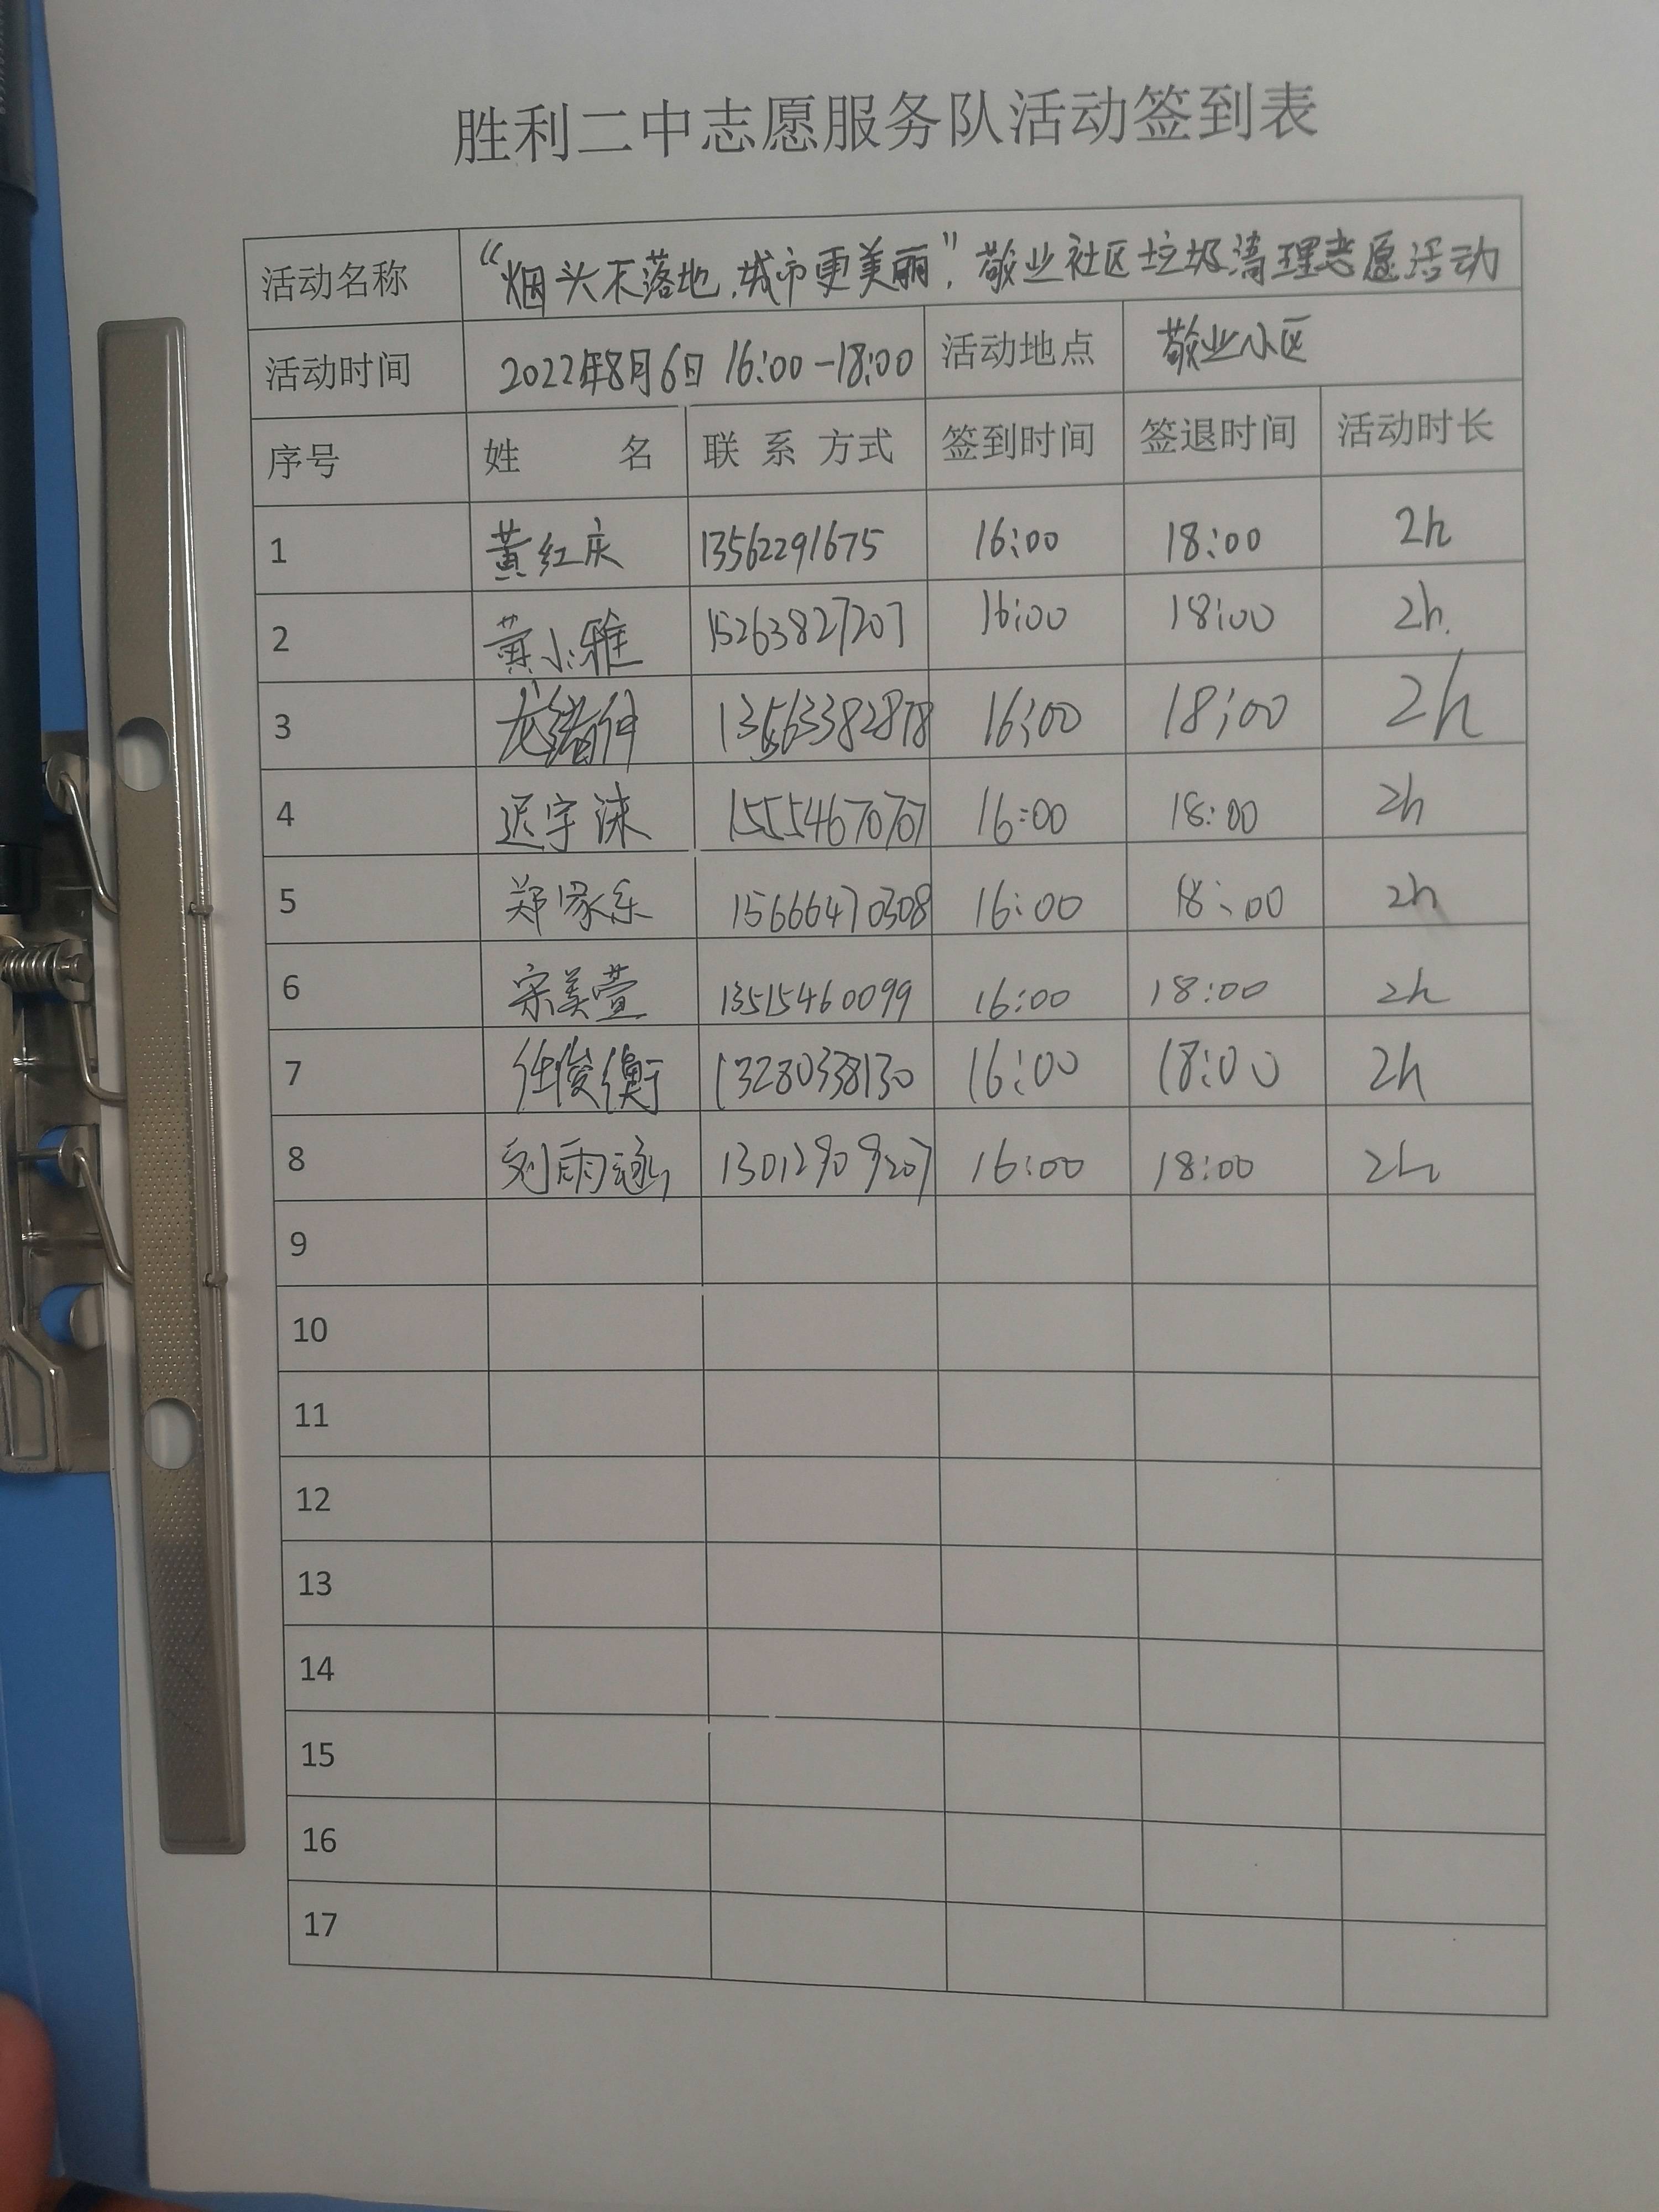 胜利二中志愿服务队活动签到表
活动名称 “烟头不落地,城市更美丽”,敬业社区垃圾清理志愿活动
活动时间 2022年8月6日 16:00-18:00 活动地点 敬业小区
序号 姓 名 联 系 方式 签到时间 签退时间 活动时长
1 黄红庆 13562291675 16:00 18:00 2h
2 黄小雅 15263827207 16:00 18:00 2h.
3 龙绪仲 13563382878 16:00 18:00 2h
4 迟宇涞 15554670707 16:00 18:00 2h
5 郑家乐 15666470308 16:00 18:00 2h
6 宋美萱 13515460099 16:00 18:00 2h
7 任俊衡 13280338130 16:00 18:00 2h
8 刘雨涵 13012909207 16:00 18:00 2h
9
10
11
12
13
14
15
16
17